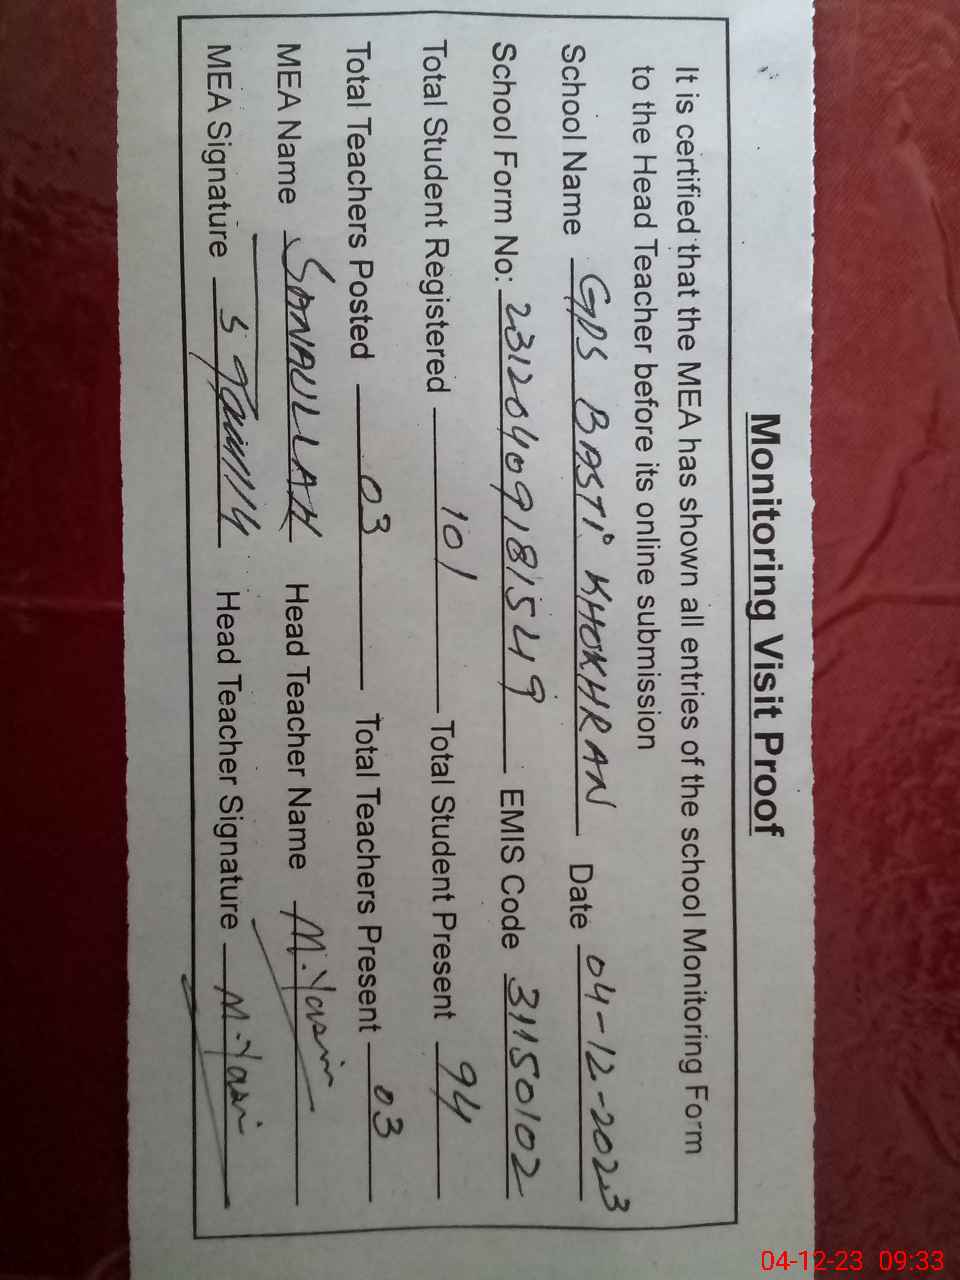 Monitoring Visit Proof
It is certified that the MEA has shown all entries of the school Monitoring Form
to the Head Teacher before its online submission
School Name GPS BASTI KHOKHRAN Date 04-12-2023
School Form No: 23120409181549 EMIS Code 31150102
Total Student Registered 101 Total Student Present 94
Total Teachers Posted 03 Total Teachers Present 03
MEA Name SANAULLAH Head Teacher Name M.Yasin
MEA Signature Head Teacher Signature M.Yasin
04-12-23 09:33